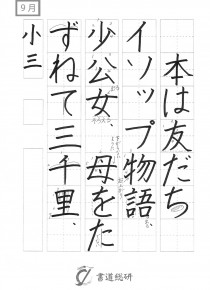 9月
本は友だち
イソップ物語、
少公女、母をた
ずねて三千里、
小三
書道総研